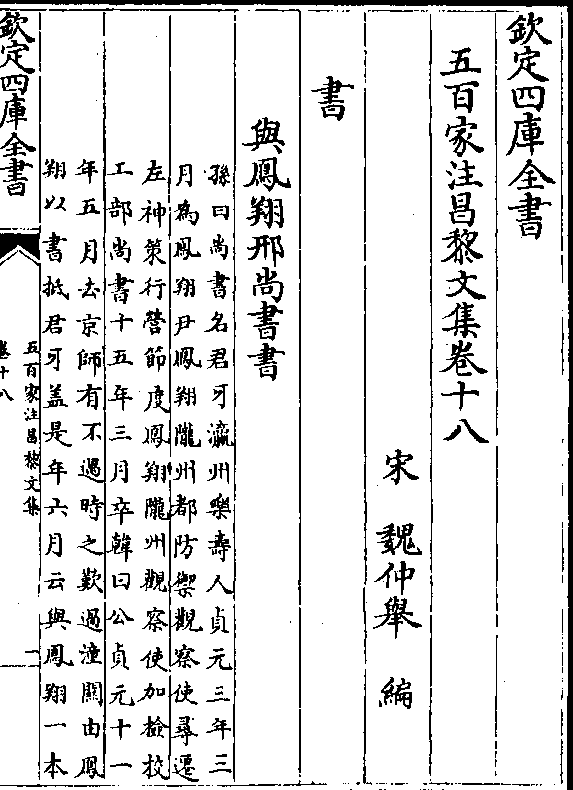 欽定四庫全書
五百家注昌黎文集卷十八
宋 魏仲舉 編
書
與鳳翔邢尚書書
孫曰尚書名君牙瀛州樂壽人貞元三年三
月為鳳翔尹鳳翔隴州都防禦觀察使尋遷
左神策行營節度鳳翔隴州觀察使加檢校
工部尚書十五年三月卒韓曰公貞元十一
年五月去京師有不遇時之歎過潼關由鳳
翔以書抵君牙盖是年六月云與鳳翔一本
欽定四庫全書
五百家注昌黎文集
卷十八
一